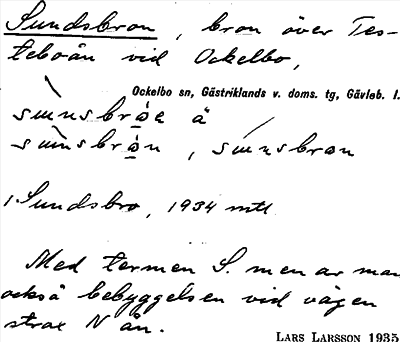 Sundsbron, bron över Tes-
teboån vid Ockelbo,
Ockelbo sn, Gästriklands v. doms. tg, Gävleb. l.
sunsbrǫa å
sunsbrǫn, sunsbron
1. Sundsbro, 1934 mtl
Med termen S. menar man
också bebyggelsen vid vägen
strax N ån.
LARS LARSSON 1935